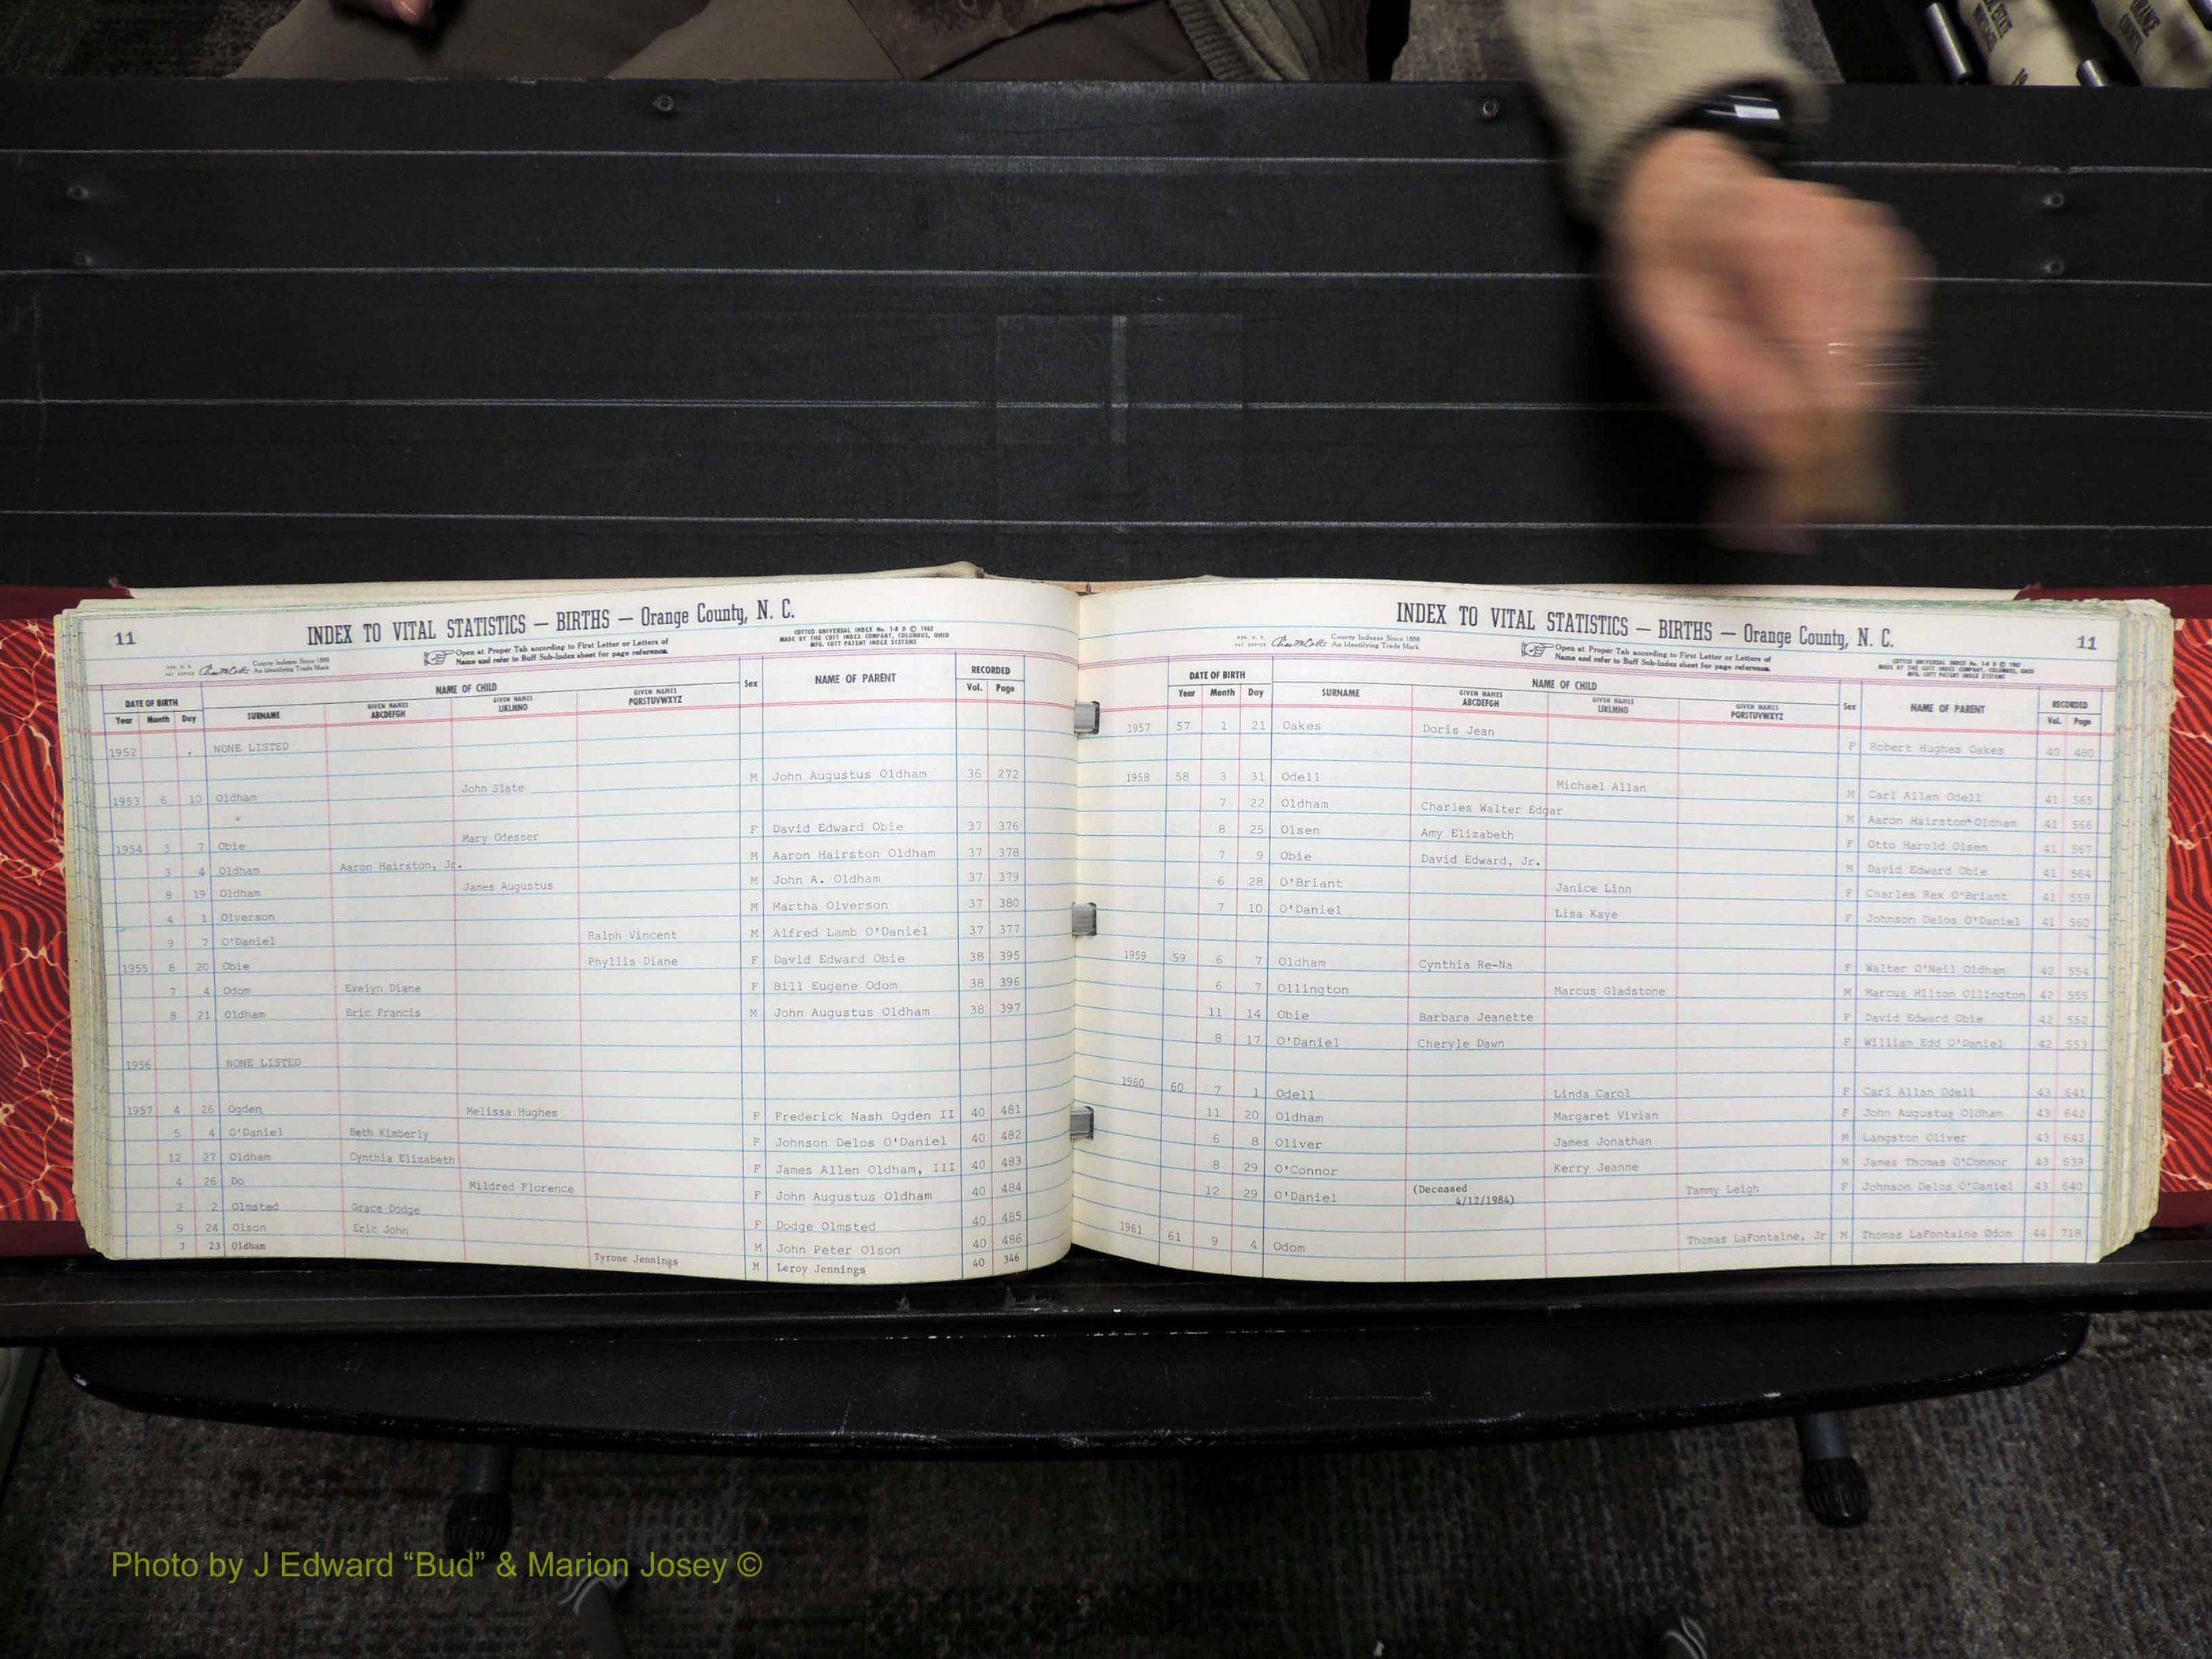 11
INDEX TO VITAL STATISTICS — BIRTHS — Orange County, N. C.
COTTCO UNIVERSAL INDEX No. 1-8 D © 1962
MADE BY THE COTT INDEX COMPANY, COLUMBUS, OHIO
MFG. COTT PATENT INDEX SYSTEMS
County Indexes Since 1888
An Identifying Trade Mark
Open at Proper Tab according to First Letter or Letters of
Name and refer to Buff Sub-Index sheet for page reference.
DATE OF BIRTH NAME OF CHILD Sex NAME OF PARENT RECORDED
Year Month Day SURNAME GIVEN NAMES ABCDEFGH GIVEN NAMES IJKLMNO GIVEN NAMES PQRSTUVWXYZ Vol. Page
1952 NONE LISTED
1953 6 10 Oldham John Slate M John Augustus Oldham 36 272
1954 3 7 Obie Mary Odesser F David Edward Obie 37 376
3 4 Oldham Aaron Hairston, Jr. M Aaron Hairston Oldham 37 378
8 19 Oldham James Augustus M John A. Oldham 37 379
4 1 Olverson M Martha Olverson 37 380
9 7 O'Daniel Ralph Vincent M Alfred Lamb O'Daniel 37 377
1955 8 20 Obie Phyllis Diane F David Edward Obie 38 395
7 4 Odom Evelyn Diane F Bill Eugene Odom 38 396
8 21 Oldham Eric Francis M John Augustus Oldham 38 397
1956 NONE LISTED
1957 4 26 Ogden Melissa Hughes F Frederick Nash Ogden II 40 481
5 4 O'Daniel Beth Kimberly F Johnson Delos O'Daniel 40 482
12 27 Oldham Cynthia Elizabeth F James Allen Oldham, III 40 483
4 26 Do Mildred Florence F John Augustus Oldham 40 484
2 2 Olmsted Grace Dodge F Dodge Olmsted 40 485
9 24 Olson Eric John M John Peter Olson 40 486
7 23 Oldham Tyrone Jennings M Leroy Jennings 40 346
INDEX TO VITAL STATISTICS — BIRTHS — Orange County, N. C.
11
County Indexes Since 1888
An Identifying Trade Mark
Open at Proper Tab according to First Letter or Letters of
Name and refer to Buff Sub-Index sheet for page reference.
COTTCO UNIVERSAL INDEX No. 1-8 D © 1962
MADE BY THE COTT INDEX COMPANY, COLUMBUS, OHIO
MFG. COTT PATENT INDEX SYSTEMS
DATE OF BIRTH NAME OF CHILD Sex NAME OF PARENT RECORDED
Year Month Day SURNAME GIVEN NAMES ABCDEFGH GIVEN NAMES IJKLMNO GIVEN NAMES PQRSTUVWXYZ Vol. Page
1957 57 1 21 Oakes Doris Jean F Robert Hughes Oakes 40 480
1958 58 3 31 Odell Michael Allan M Carl Allan Odell 41 565
7 22 Oldham Charles Walter Edgar M Aaron Hairston Oldham 41 566
8 25 Olsen Amy Elizabeth F Otto Harold Olsen 41 567
7 9 Obie David Edward, Jr. M David Edward Obie 41 564
6 28 O'Briant Janice Linn F Charles Rex O'Briant 41 559
7 10 O'Daniel Lisa Kaye F Johnson Delos O'Daniel 41 560
1959 59 6 7 Oldham Cynthia Re-Na F Walter O'Neil Oldham 42 554
6 7 Ollington Marcus Gladstone M Marcus Hilton Ollington 42 555
11 14 Obie Barbara Jeanette F David Edward Obie 42 552
8 17 O'Daniel Cheryle Dawn F William Edd O'Daniel 42 553
1960 60 7 1 Odell Linda Carol F Carl Allan Odell 43 641
11 20 Oldham Margaret Vivian F John Augustus Oldham 43 642
6 8 Oliver James Jonathan M Langston Oliver 43 643
8 29 O'Connor Kerry Jeanne M James Thomas O'Connor 43 639
12 29 O'Daniel (Deceased 4/12/1984) Tammy Leigh F Johnson Delos O'Daniel 43 640
1961 61 9 4 Odom Thomas LaFontaine, Jr M Thomas LaFontaine Odom 44 718
Photo by J Edward “Bud” & Marion Josey ©